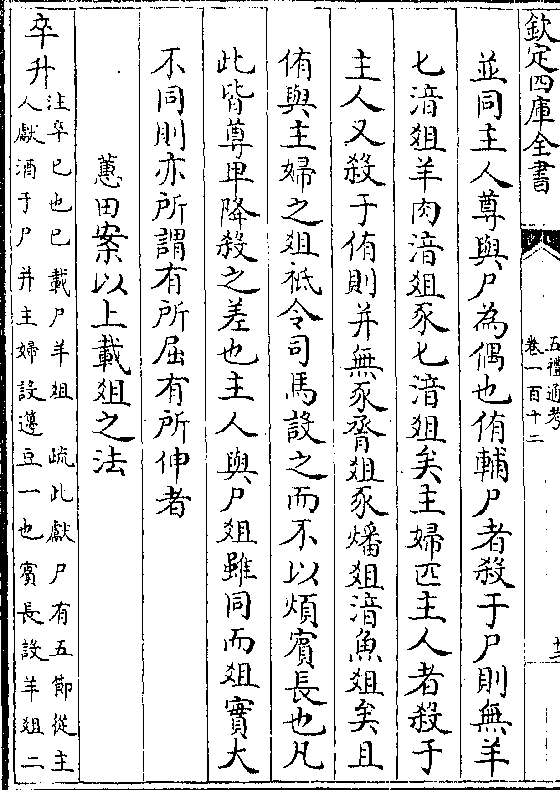 欽定四庫全書
五禮通考
卷一百十二
並同主人尊與尸為偶也侑輔尸者殺于尸則無羊
匕湆俎羊肉湆俎豕匕湆俎矣主婦匹主人者殺于
主人又殺于侑則并無豕脀俎豕燔俎湆魚俎矣且
侑與主婦之俎祗令司馬設之而不以煩賓長也凡
此皆尊卑降殺之差也主人與尸俎雖同而俎實大
不同則亦所謂有所屈有所伸者
蕙田案以上載俎之法
卒升
注卒已也已載尸羊俎 疏此獻尸有五節從主
人獻酒于尸并主婦設籩豆一也賓長設羊俎二